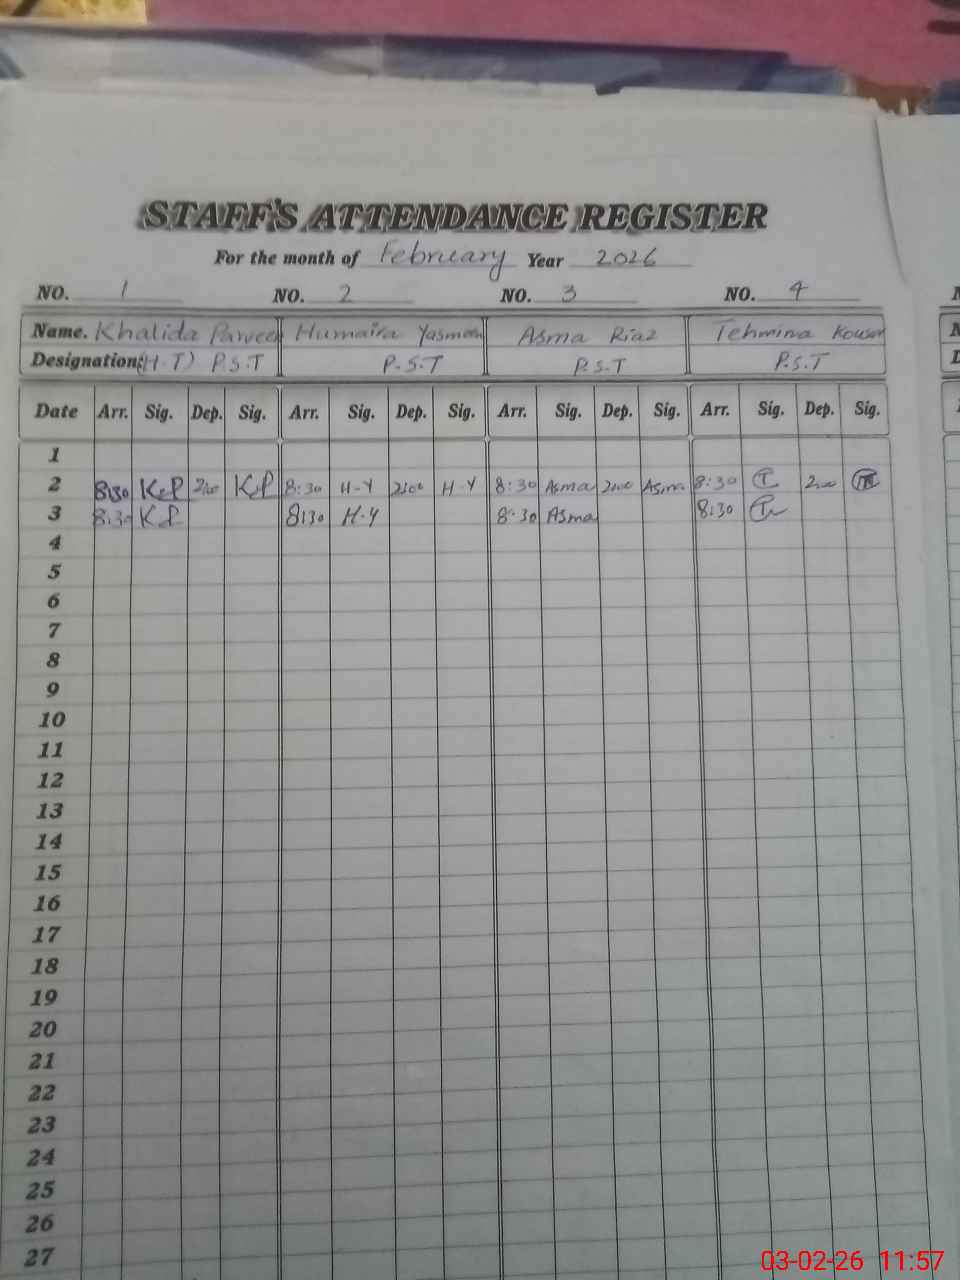 STAFF'S ATTENDANCE REGISTER
For the month of February Year 2026
NO. 1 NO. 2 NO. 3 NO. 4
Name. Khalida Parveen Humaira Yasmeen Asma Riaz Tehmina Kousar
Designation: (H.T) P.S.T P.S.T P.S.T P.S.T
Date Arr. Sig. Dep. Sig. Arr. Sig. Dep. Sig. Arr. Sig. Dep. Sig. Arr. Sig. Dep. Sig.
1
2 8:30 K.P 2:00 K.P 8:30 H-Y 2:00 H-Y 8:30 Asma 2:00 Asma 8:30 T 2:00
3 8:30 K.P 8:30 H-Y 8:30 Asma 8:30 T
4
5
6
7
8
9
10
11
12
13
14
15
16
17
18
19
20
21
22
23
24
25
26
27
03-02-26 11:57